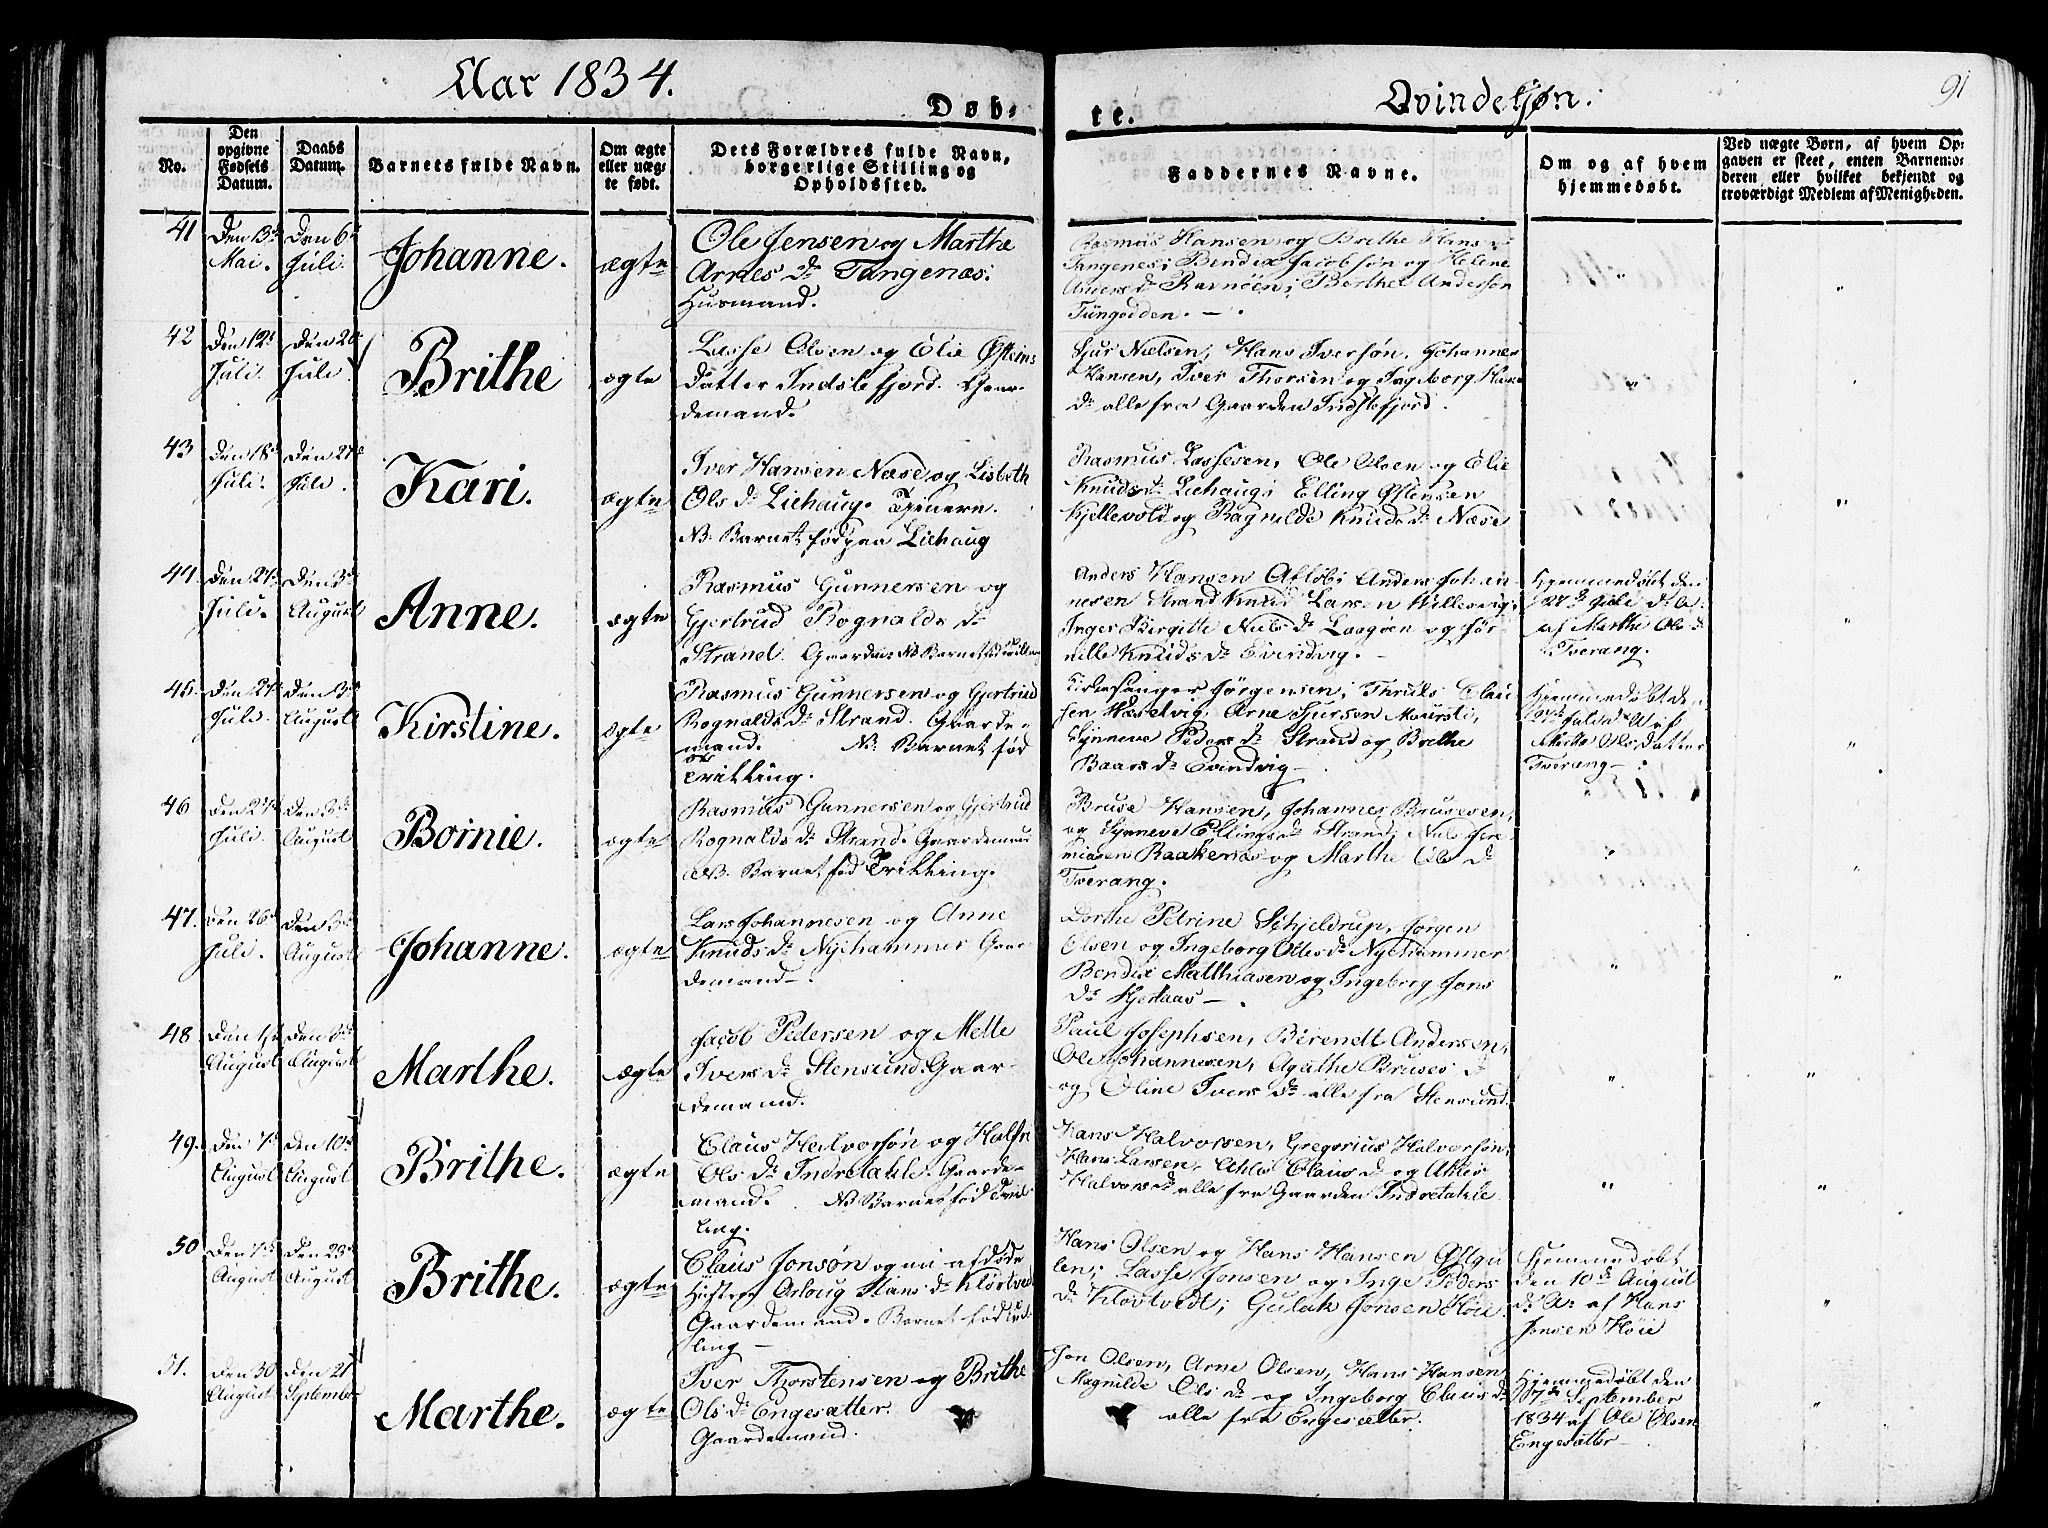 Aar 1834.
Døb-
te.
Qvindekjøn.
91
No.
Den
opgivne
Fødsels
Datum.
Daabs
Datum.
Barnets fulde Navn.
Om ægte
eller uæg-
te født.
Dets Forældres fulde Navn,
borgerlige Stilling og
Opholdssted.
Faddernes Navne.
Om og af hvem
hjemmedøbt.
Ved uægte Børn, af hvem Op-
gaven er skeet, enten Barnemo-
deren eller hvilket bekjendt og
troværdigt Medlem af Menigheden.
41
Den 13de
Mai.
Den 6te
Juli.
Johanne.
ægte
Ole Jensen og Marthe
Arnes Dr Tangenæs.
Husmand.
Rasmus Hansen og Brithe Hans Dr
Tangenes; Bendix Jacobsøn og Helene
Anders Dr Ravnöen; Berthel Andersøn
Tungodden.
42
Den 12te
Juli.
Den 20
Juli
Brithe
ægte
Lasse Olsen og Elie Østens
Datter Indslefjord. Gaar-
demand.
Sjur Nielsen, Hans Iversøn, Johannes
Hansen, Iver Thorsen og Ingeborg Hans
Dr alle fra Gaarden Indslefjord.
43
Den 18de
Juli.
Den 27de
Juli.
Kari.
ægte
Iver Hansen Næse og Lisbeth
Ols Dr Liehaug. Tjenere.
NB. Barnet født paa Liehaug
Rasmus Lassesen, Ole Olsen og Elie
Knuds Dr Liehaug; Elling Østensen
Kjellevold og Ragnilde Knuds Dr Næse
44.
Den 27de
Juli.
Den 3de
August
Anne.
ægte
Rasmus Gunnersen og
Gjertrud Rognalds Dr
Strand. Gaardm. NB Barnet født Trilling
Anders Hansen Afløb; Anders Johan-
nesen Strand Knud Larsen Hillesvig;
Inger Birgitte Niels Dr Laagøen og Jør-
nille Knuds Dr Evindvig.
Hjemmedøbt den
27de Juli d. A.
af Marthe Ols Dr
Tverang.
45.
Den 27de
Juli.
Den 3de
August
Kirstine.
ægte
Rasmus Gunnersen og Gjertrud
Rognalds Dr Strand. Gaarde-
mand. NB. Barnet fød
Trilling.
Kirkesanger Jørgensen; Thruls Clau
sen Hæselvig, Arne Sjursøn Mjursti,
Synneve Peders Dr Strand og Brithe
Baars Dr Evindvig
Hjemmedøbt den
27de Juli d. A af
Marthe Ols Datter
Tverang
46
Den 27de
Juli.
Den 3de
August
Bornie.
ægte
Rasmus Gunnersen og Gjertrud
Rognalds Dr Strand. Gaardemand
NB. Barnet fød Trilling.
Bruse Hansen, Johannes Brusesen,
og Synneve Ellings Dr Strand; Niels Jere
miasen Raakenæs og Marthe Ols Dr
Tverang.
47.
Den 26de
Juli.
Den 3de
August
Johanne.
ægte
Lars Johannesen og Anne
Knuds Dr Nyehammer Gaar
demand.
Dorthe Petrine Schjeldrup, Jørgen
Olsen og Ingeborg Oles Dr Nyehammer
Bendix Matthiasen og Ingebrog Jons
Dr Hjertaas
48
Den 1ste
August
Den 3de
August
Marthe.
ægte
Jacob Pedersen og Mette
Ivers Dr Stensund. Gaar-
demand.
Paul Josephsen, Birendt Andersen,
Ole Johannesen, Agathe Bruses Dr
og Oline Ivers Dr alle fra Stensund.
49.
Den 7de
August
Den 10de
August
Brithe.
ægte
Claus Halvorsøn og
Ols Dr Indretakle. Gaarde-
mand. NB Barnet fød Tvil-
ling.
Hans Halvorsen, Gregorius Halvorsøn,
Hans Larsen, Ahlis Claus Dr og Ahlis
Halvors Dr alle fra Gaarden Indretakle.
50
Den 7de
August
Den 23de
August
Brithe.
ægte
Claus Jonsøn og nu afdøde
Hustroe Asloug Hans Dr Kløvtvedt
Gaardemand. Barnet fød Tvil
ling
Hans Olsen og Hans Hansen Østgu
len; Lasse Jonsen og Inge Peders
Dr Kløvtvedt; Gulak Jonsen Høie.
Hjemmedøbt
Den 10de August
d. A. af Hans
Jonsen Høie
51.
Den 30
August
Den 21
September
Marthe.
ægte
Iver Thorstensen og Brithe
Ols Dr Engesætter.
Gaardemand.
Jon Olsen, Arne Olsen, Hans Hansen
Magnilde Ols Dr og Ingeborg Claus Dr
alle fra Engesætter.
Hjemmedøbt den
7de September
1834 af Ole Olsen
Engesætter